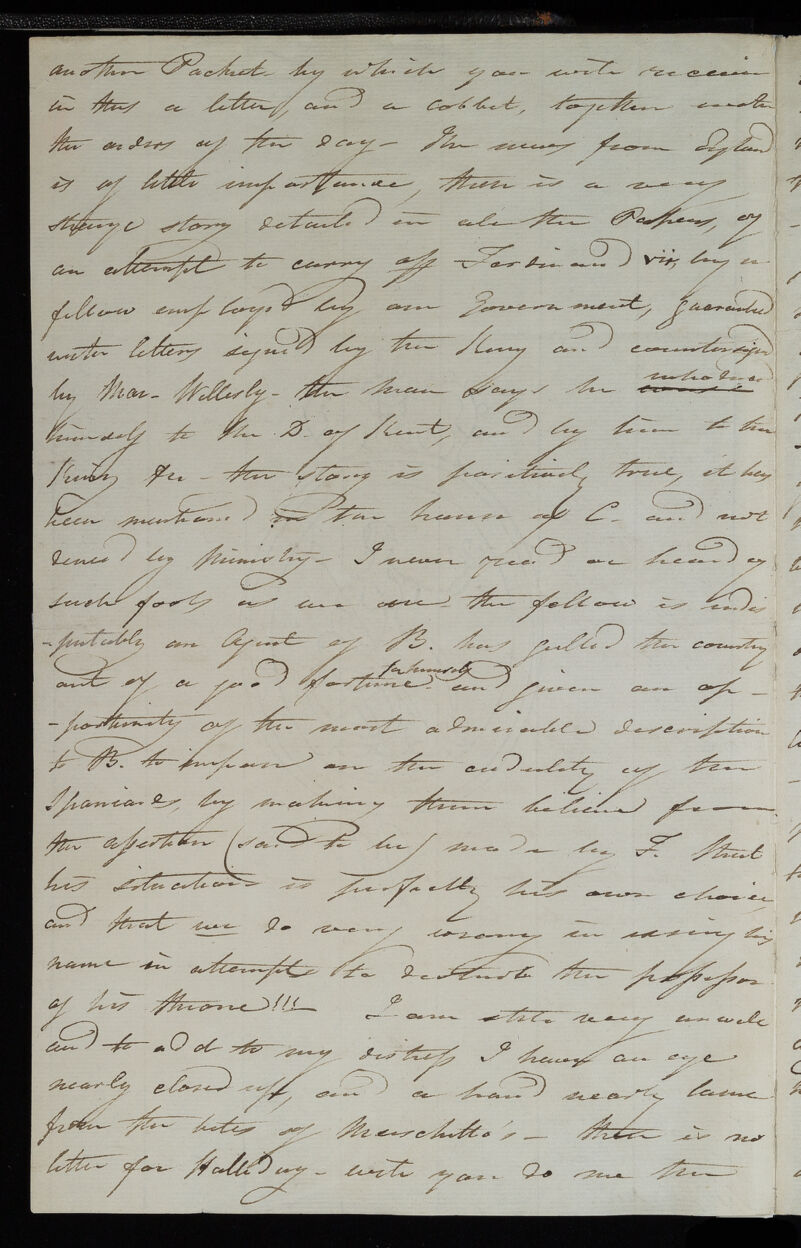 another Packet by which you will receive
in this a letter, and a Cobbet, together with
the orders of the day - The news from England
is of little importance, there is a very
strange story detailed in all the Papers, of
an attempt to carry off Ferdinand vii, by a
fellow employed by our Government, guarantied
with letters signed by the King and countersigned
by Mar- Wellesly - the man says he introduced
himself to the D. of Kent, and by him to the
King &c - the story is positively true, it has
been mentioned in the house of C. and not
denied by Ministry - I never read or heard of
such fools as we are the fellow is indis
-putably an Agent of B. has gulled the country
out of a good fortune for himself and given an op-
-portunity of the most admirable description
to B. to impose on the credulity of the
Spaniards, by making them believe from
the assertion (said to be) made by F. that
his situation is perfectly his own choice,
and that we do very wrong in using his
name in attempts to the possessor
of his throne!!! I am still very unwell
and to add to my distress I have an eye
nearly closed up, and a hand nearly lame
from the bites of Muschetto's - there is no
letter for Halliday - will you do me the